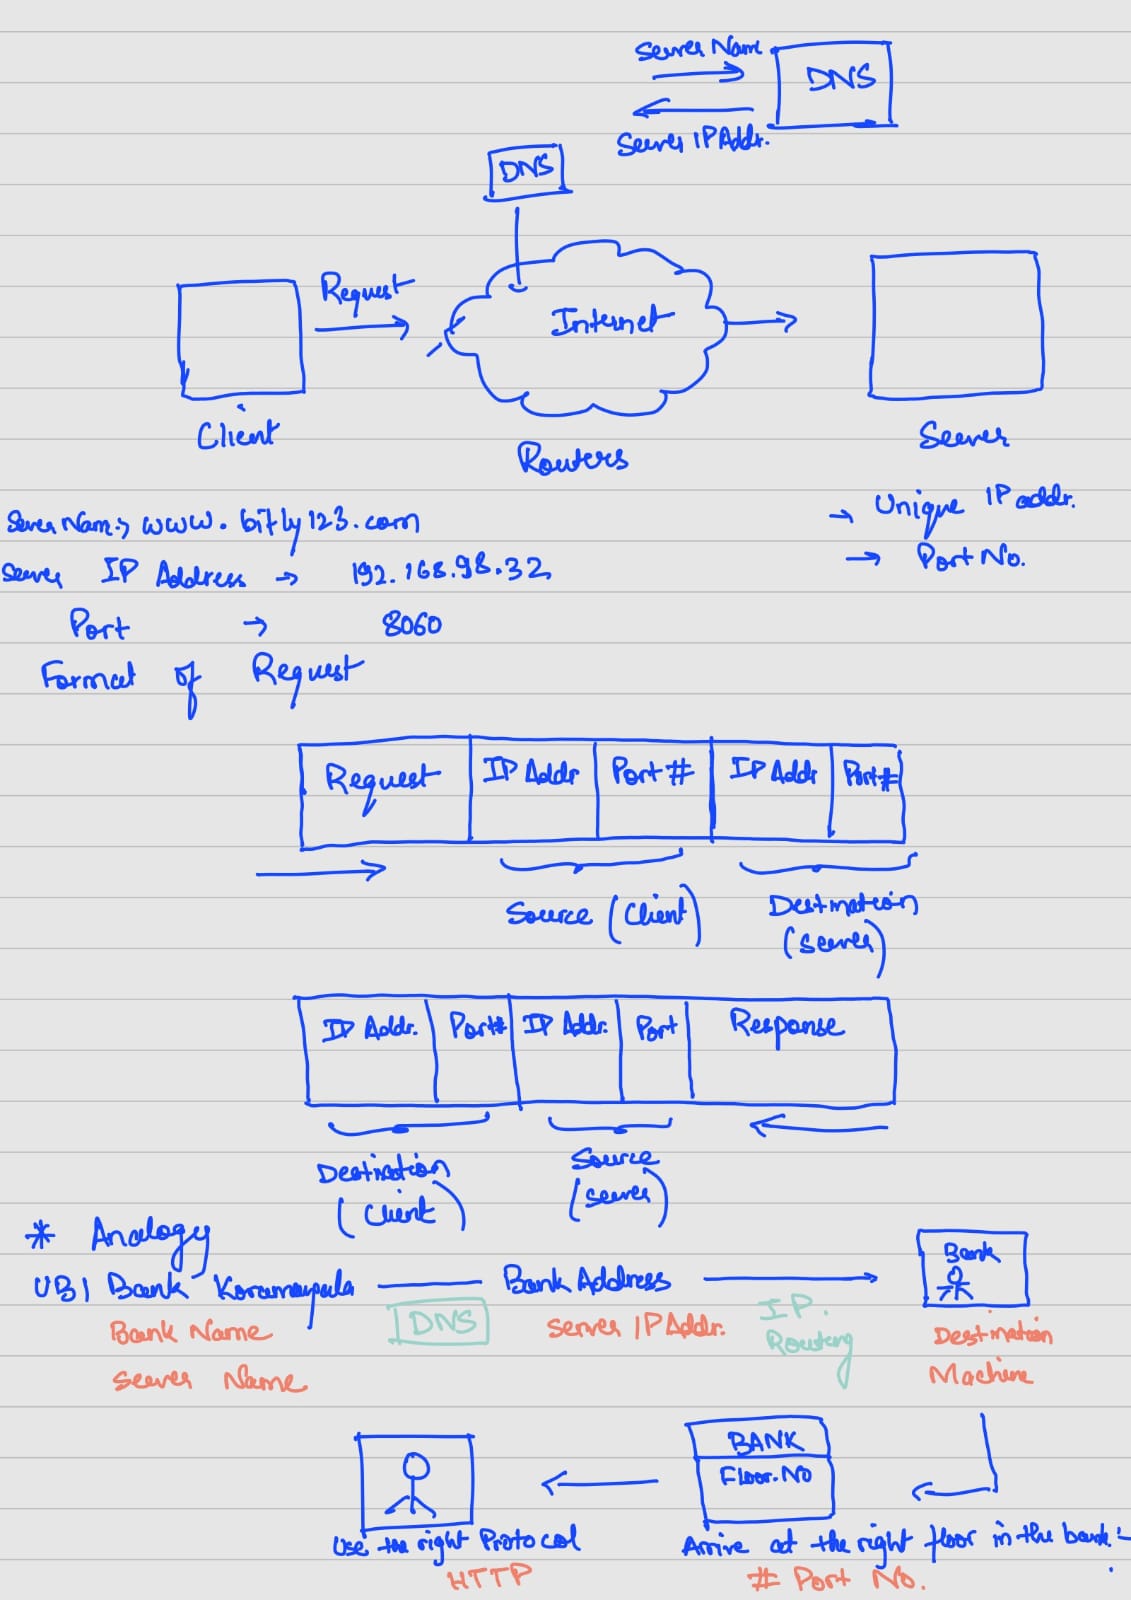 Server Name
DNS
Server IP Addr.
DNS
Request
Internet
Client
Routers
Server
Server Name → www.bitly123.com
→ Unique IP addr.
Server IP Address → 192.168.98.32
→ Port No.
Port → 8060
Format of Request
Request IP Addr Port # IP Addr Port #
Source (Client) Destination
(Server)
IP Addr. Port# IP Addr. Port Response
Destination Source
(Client) (Server)
* Analogy
UBI Bank Koramangala Bank Address Bank
Bank Name DNS Server IP Addr. IP. Routing Destination
Server Name Machine
BANK
Floor.No
Use the right Protocol Arrive at the right floor in the bank:
HTTP # Port No.